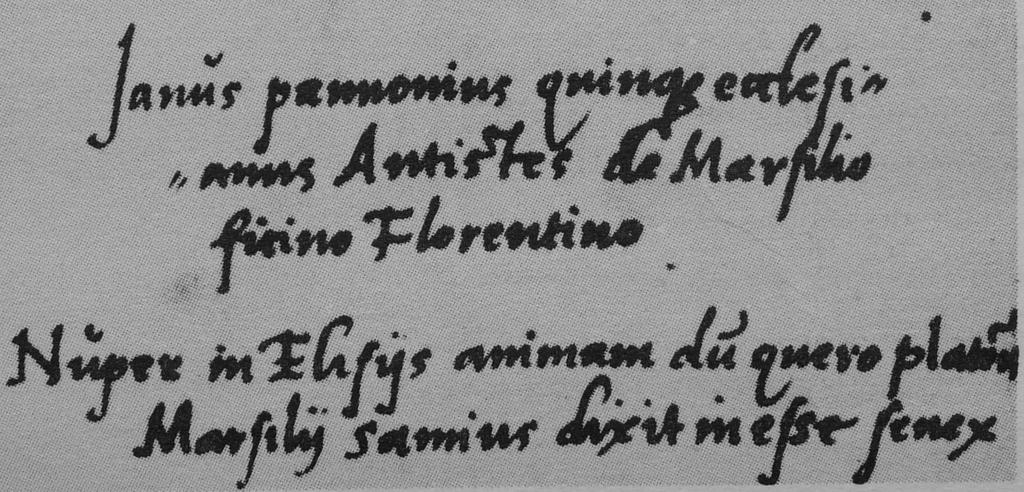 Janŭs pannonius quinq; ecclesi〃
〃 anus Antistes de Marsilio
ficino Florentino
Nŭper in Elisijs animam dū quero platōīs
Marsilij samius dixit inesse senex